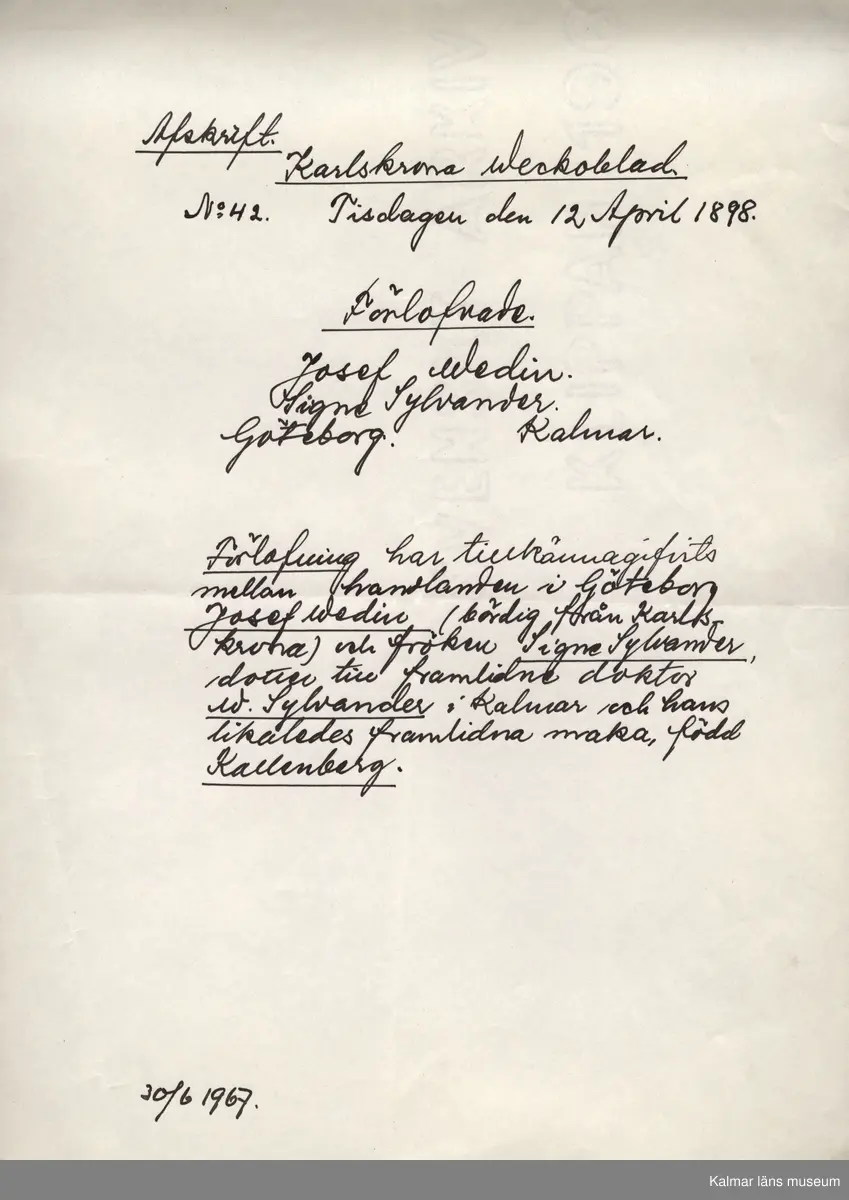 Afskrift.
Karlskrona Weckoblad.
No: 42. Tisdagen den 12 April 1898.
Förlofvade.
Josef Wedin.
Signe Sylvander.
Göteborg. Kalmar.
Förlofning har tillkännagifvits
mellan handlanden i Göteborg
Josef Wedin (bördig från Karls-
krona) och fröken Signe Sylvander,
dotter till framlidne doktor
W. Sylvander i Kalmar och hans
likaledes framlidna maka, född
Kallenberg.
30/6 1967.
Kalmar läns museum